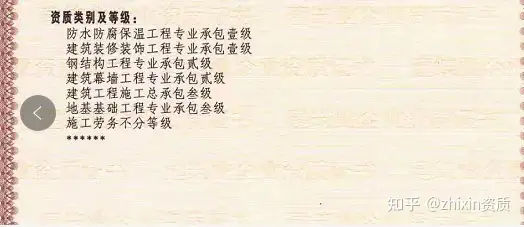 资质类别及等级：
防水防腐保温工程专业承包壹级
建筑装修装饰工程专业承包壹级
钢结构工程专业承包贰级
建筑幕墙工程专业承包贰级
建筑工程施工总承包叁级
地基基础工程专业承包叁级
施工劳务不分等级
******
知乎 @zhixin资质